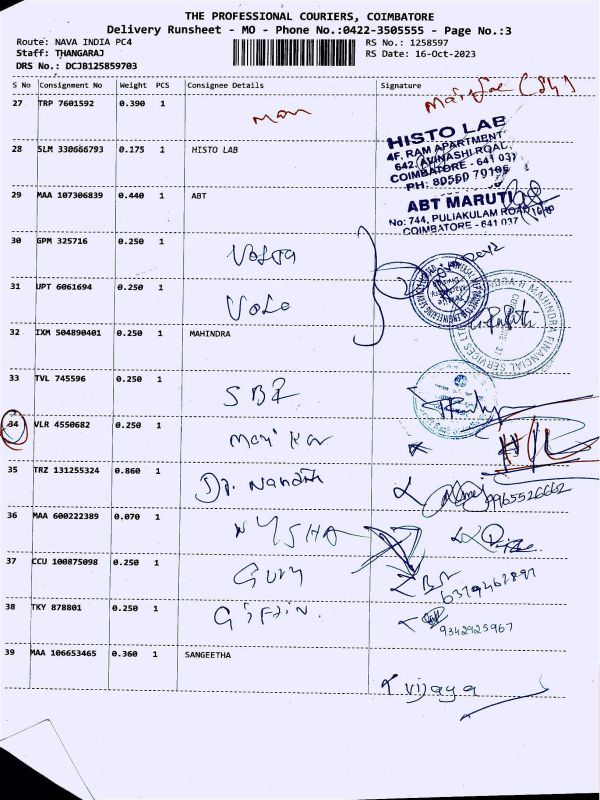 THE PROFESSIONAL COURIERS, COIMBATORE
Delivery Runsheet - MO - Phone No.:0422-3505555 - Page No.:3
Route: NAVA INDIA PC4 RS No.: 1258597
Staff: THANGARAJ RS Date: 16-Oct-2023
DRS No.: DCJB125859703
S No Consignment No Weight PCS Consignee Details Signature
27 TRP 7601592 0.390 1
28 SLM 330666793 0.175 1 HISTO LAB
HISTO LAB
4F, RAM APARTMENT
642, AVINASHI ROAD,
COIMBATORE - 641 037
PH: 80560 70106
29 MAA 107306839 0.440 1 ABT
ABT MARUTI
No: 744, PULIAKULAM ROAD
COIMBATORE - 641 037
30 GPM 325716 0.250 1 Volta
31 UPT 6061694 0.250 1
32 IXM 504890401 0.250 1 MAHINDRA
33 TVL 745596 0.250 1 SBI
34 VLR 4550682 0.250 1
35 TRZ 131255324 0.860 1 Dr. 9965526662
36 MAA 600222389 0.070 1 NYSHA
37 CCU 100875098 0.250 1 Guru
38 TKY 878801 0.250 1 9342925967
39 MAA 106653465 0.360 1 SANGEETHA
vijaya